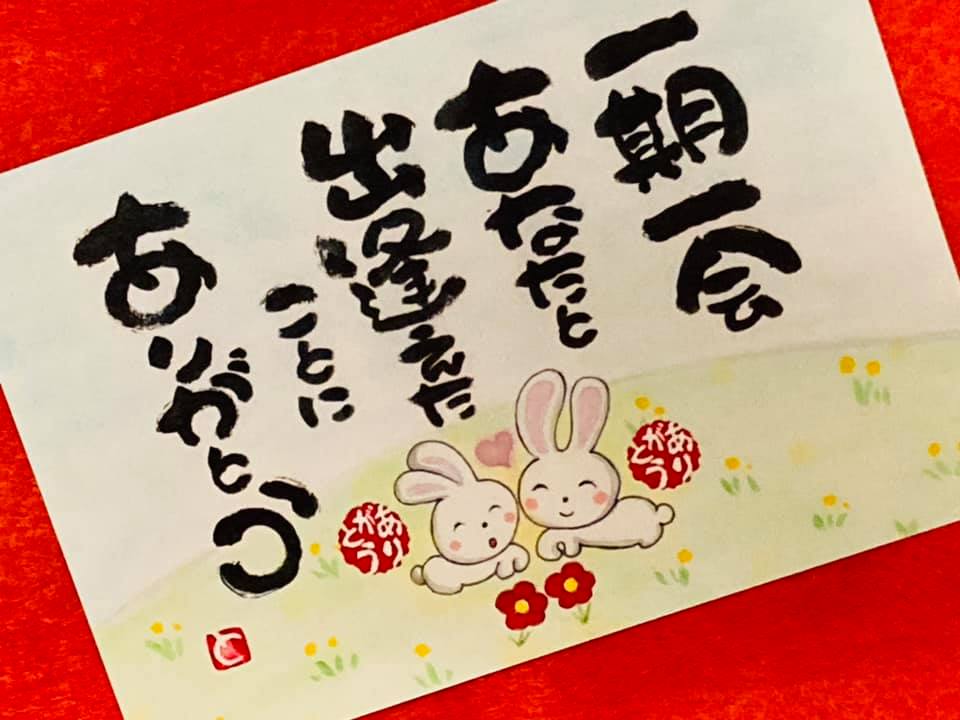 一期一会
あなたと
出逢えた
ことに
ありがとう
ありがとう
ありがとう
と